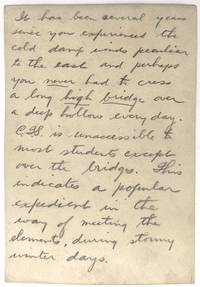 It has been several years
since you experienced the
cold damp winds peculiar
to the east and perhaps
you never had to cross
a long high bridge over
a deep hollow every day.
C.H. is unaccessible to
most students except
over the bridges. This
indicates a popular
expedient in the
way of meeting the
elements, during stormy
winter days.